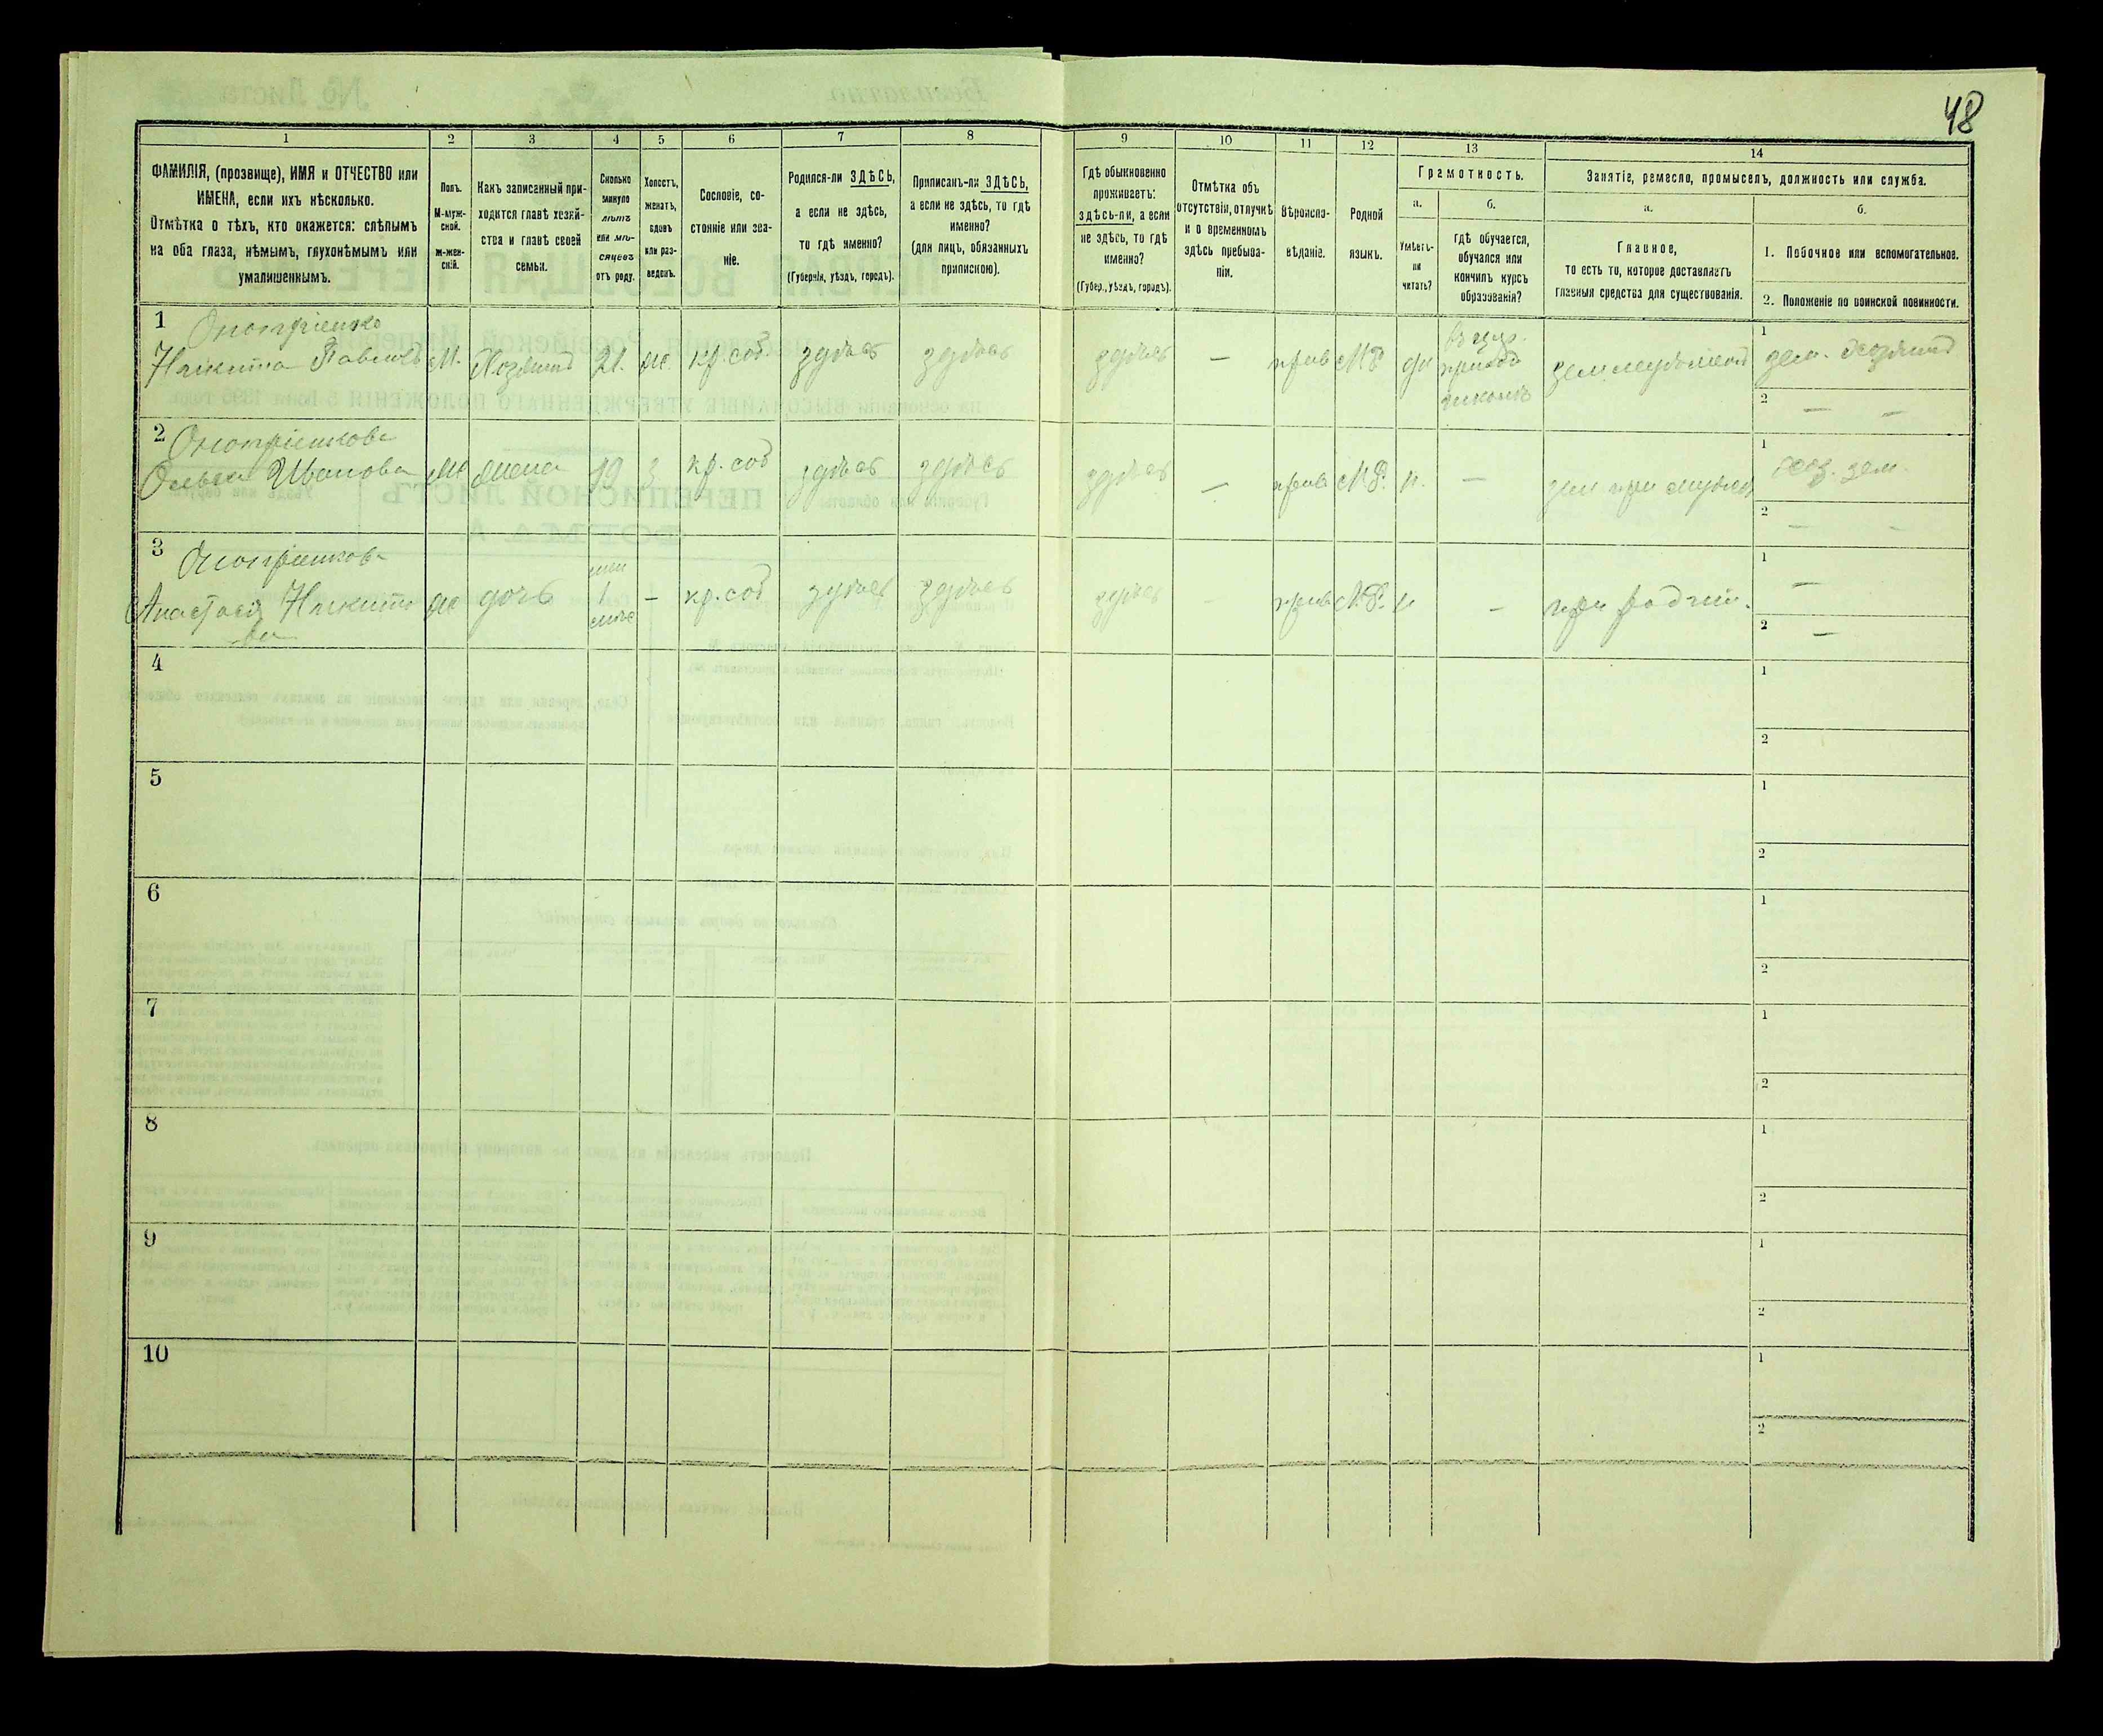 48
1
2
3
4
5
6
7
8
9
10
11
12
13
14
ФАМИЛІЯ, (прозвище), ИМЯ и ОТЧЕСТВО или
ИМЕНА, если ихъ нѣсколько.
Отмѣтка о тѣхъ, кто окажется: слѣпымъ
на оба глаза, нѣмымъ, глухонѣмымъ или
умалишеннымъ.
Полъ.
М-муж-
ской.
ж-жен-
скій.
Какъ записанный при-
ходится главѣ хозяй-
ства и главѣ своей
семьи.
Сколько
минуло
лѣтъ
или мѣ-
сяцевъ
отъ роду.
Холостъ,
женатъ,
вдовъ
или раз-
веденъ.
Сословіе, со-
стояніе или зва-
ніе.
Родился-ли ЗДѢСЬ,
а если не здѣсь,
то гдѣ именно?
(Губернія, уѣздъ, городъ).
Приписанъ-ли ЗДѢСЬ,
а если не здѣсь, то гдѣ
именно?
(для лицъ, обязанныхъ
припискою).
Гдѣ обыкновенно
проживаетъ:
здѣсь-ли, а если
не здѣсь, то гдѣ
именно?
(Губер., уѣздъ, городъ).
Отмѣтка объ
отсутствіи, отлучкѣ
и о временномъ
здѣсь пребыва-
ніи.
Вѣроиспо-
вѣданіе.
Родной
языкъ.
Грамотность.
а.
б.
Умѣетъ-
ли
читать?
гдѣ обучается,
обучался или
кончилъ курсъ
образованія?
Занятіе, ремесло, промыселъ, должность или служба.
а.
б.
Главное,
то есть то, которое доставляетъ
главныя средства для существованія.
1. Побочное или вспомогательное.
2. Положеніе по воинской повинности.
1
Онопріенко
Никита Павловъ
М.
Хозяинъ
21.
же
кр. соб.
здѣсь
здѣсь
здѣсь
—
прав
М.Р.
да
школѣ
1
2
— —
2
Онопріенкова
Ольга Иванова
жена
19
з
кр. соб
здѣсь
здѣсь
здѣсь
—
прав
М.Р.
н.
—
1
2
— —
3
Онопріенкова
Анастасія Никито
ва
же
дочь
1
мѣс
—
кр. соб
здѣсь
здѣсь
здѣсь
—
прав
М.Р.
н
—
при родит.
1
—
2
—
4
1
2
5
1
2
6
1
2
7
1
2
8
1
2
9
1
2
10
1
2